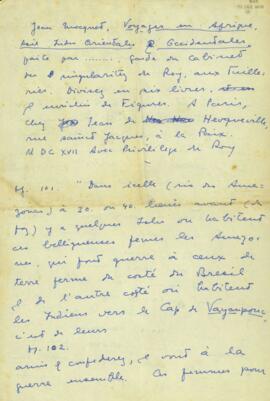 Jean Mocquet, Voyages en Afrique,
Asie Indes Orientales & Occidentales
faits par ........ Garde du Cabinet
des singularitez du Roy, aux Tuille-
ries. Divisez en six livres,
& enrichis de Figures. A Paris,
chez Jean de Heuqueville,
rue sainct Jacques, à la Paix.
M DC XVII Avec Privilege du Roy
pg. 101. "Dans icelle (riv. des Ama-
zones) à 30. ou 40. lieues avant
il y a quelques Isles ou habitent
ces belliqueuses femmes les Amazo-
nes, qui font guerre à ceux de
terre ferme du costé du Bresil
& de l'autre costé où habitent
les Indiens vers le Cap de
c'est de leurs
pg. 102.
amis & confederez, & vont à la
guerre ensemble. Ces femmes pour